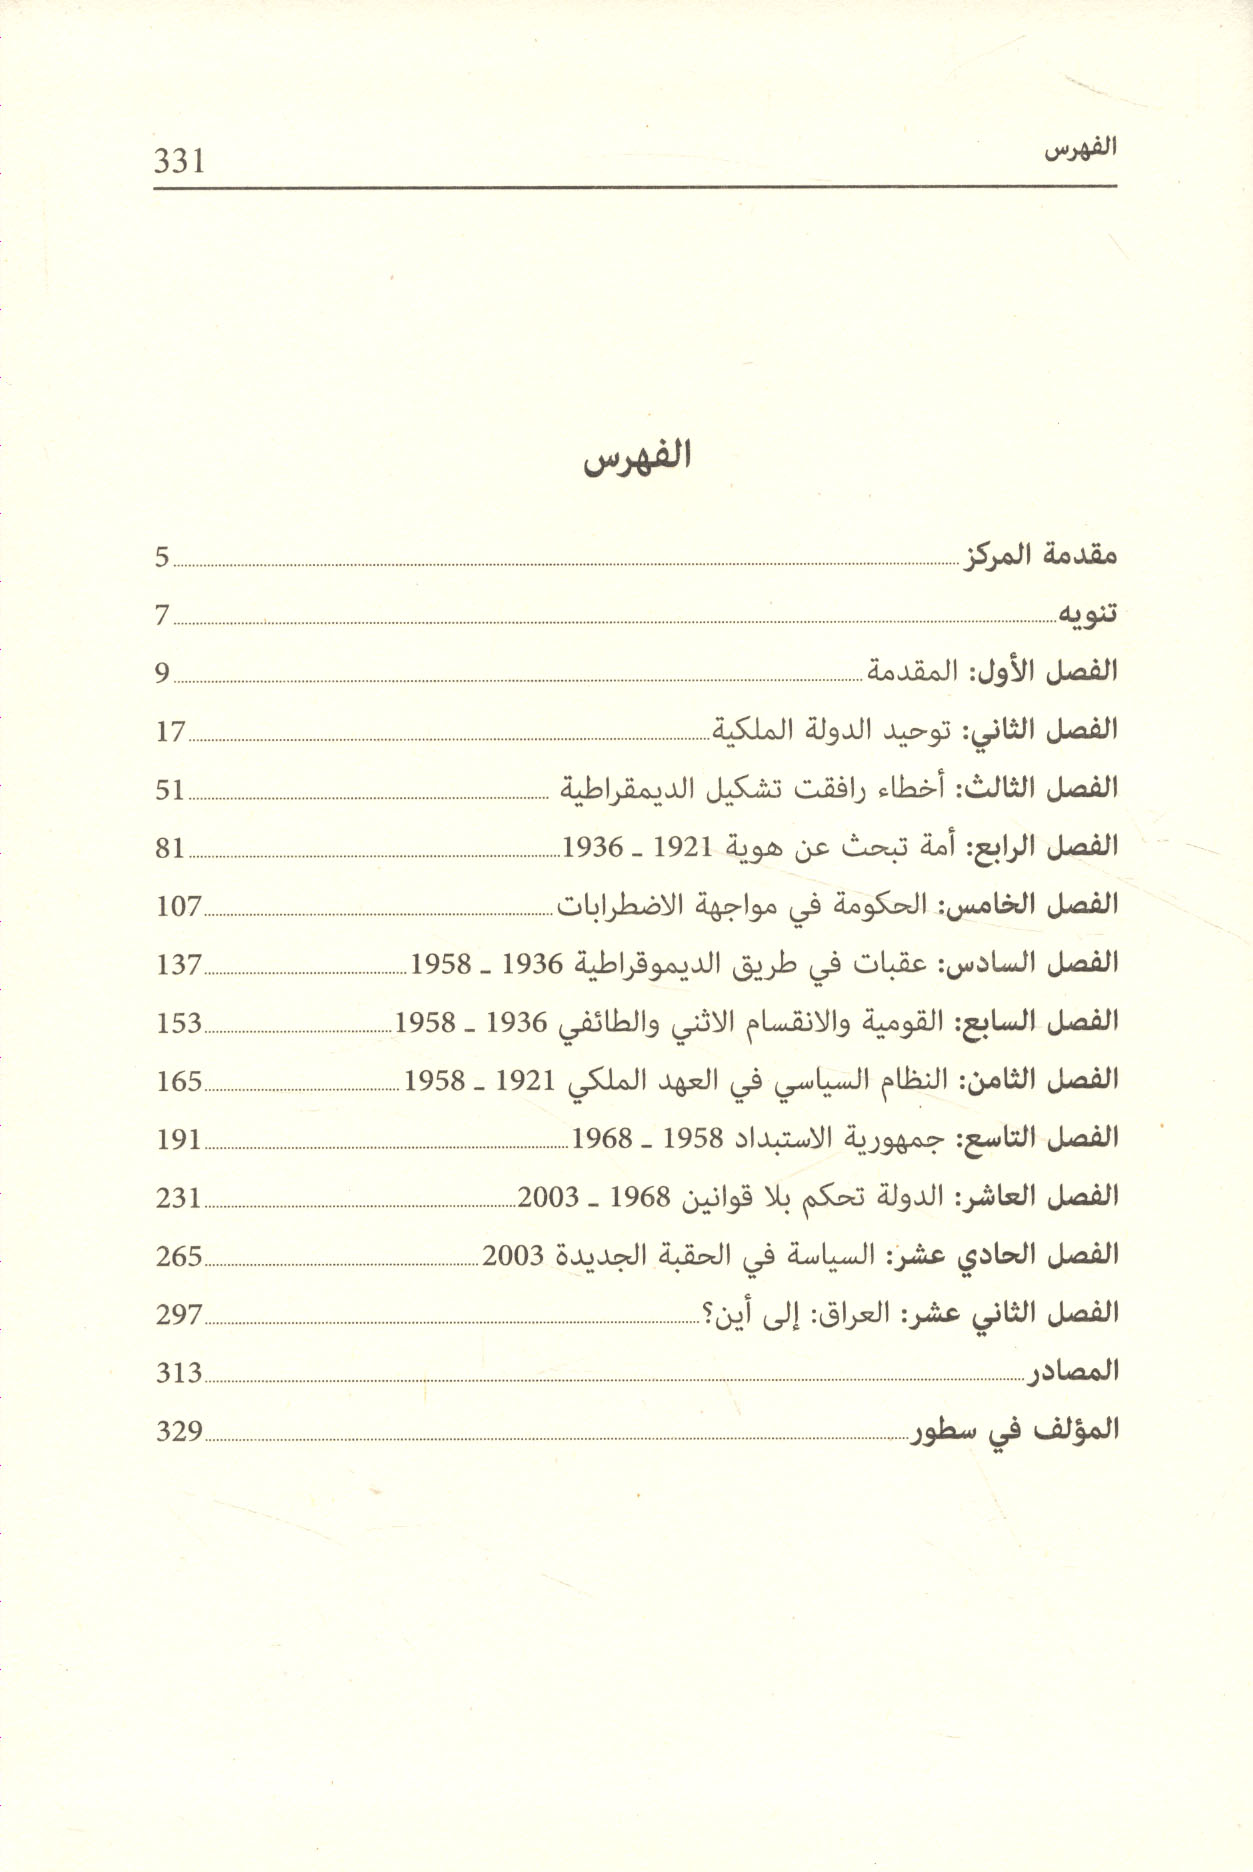 الفهرس 331
الفهرس
مقدمة المركز 5
تنويه 7
الفصل الأول: المقدمة 9
الفصل الثاني: توحيد الدولة الملكية 17
الفصل الثالث: أخطاء رافقت تشكيل الديمقراطية 51
الفصل الرابع: أمة تبحث عن هوية 1921 ـ 1936 81
الفصل الخامس: الحكومة في مواجهة الاضطرابات 107
الفصل السادس: عقبات في طريق الديموقراطية 1936 ـ 1958 137
الفصل السابع: القومية والانقسام الاثني والطائفي 1936 ـ 1958 153
الفصل الثامن: النظام السياسي في العهد الملكي 1921 ـ 1958 165
الفصل التاسع: جمهورية الاستبداد 1958 ـ 1968 191
الفصل العاشر: الدولة تحكم بلا قوانين 1968 ـ 2003 231
الفصل الحادي عشر: السياسة في الحقبة الجديدة 2003 265
الفصل الثاني عشر: العراق: إلى أين؟ 297
المصادر 313
المؤلف في سطور 329